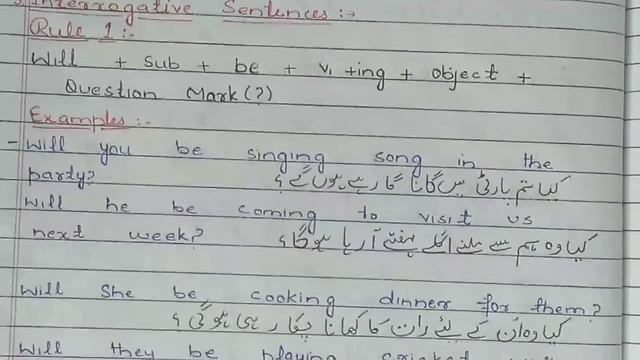 Interrogative Sentences :-
Rule 1 :-
Will + sub + be + v1 +ing + object +
Question Mark (?)
Examples :-
- Will you be singing song in the
party? کیا تم پارٹی میں گانا گا رہے ہوں گے ؟
Will he be coming to visit us
next week? کیا وہ ہم سے ملنے اگلے ہفتے آ رہا ہوگا ؟
Will She be cooking dinner for them?
کیا وہ اُن کے لئے رات کا کھانا پکا رہی ہو گی ؟
Will they be playing cricket